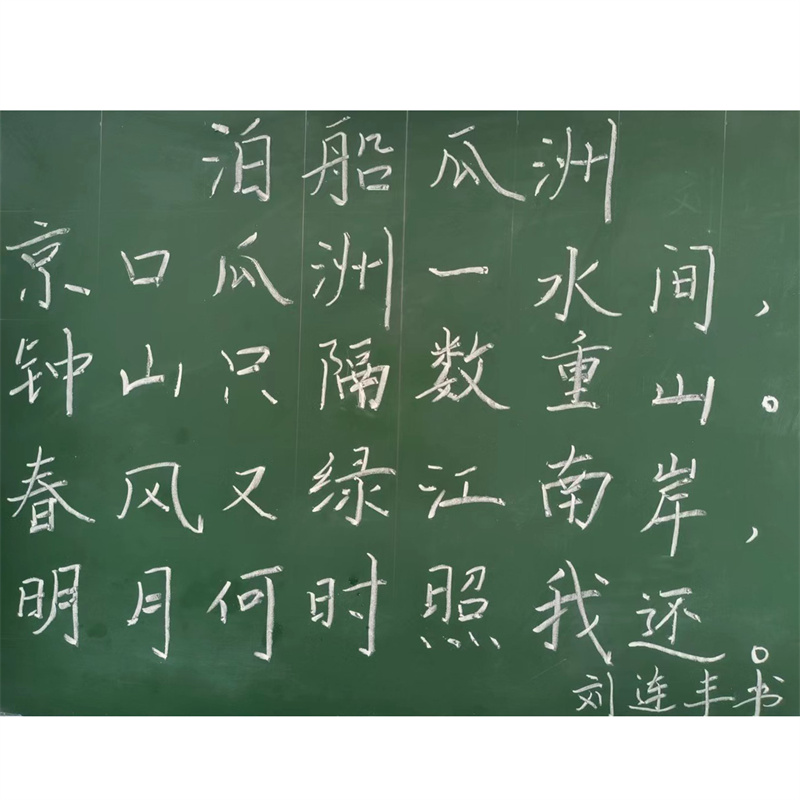 泊船瓜洲
京口瓜洲一水间，
钟山只隔数重山。
春风又绿江南岸，
明月何时照我还。
刘连丰书